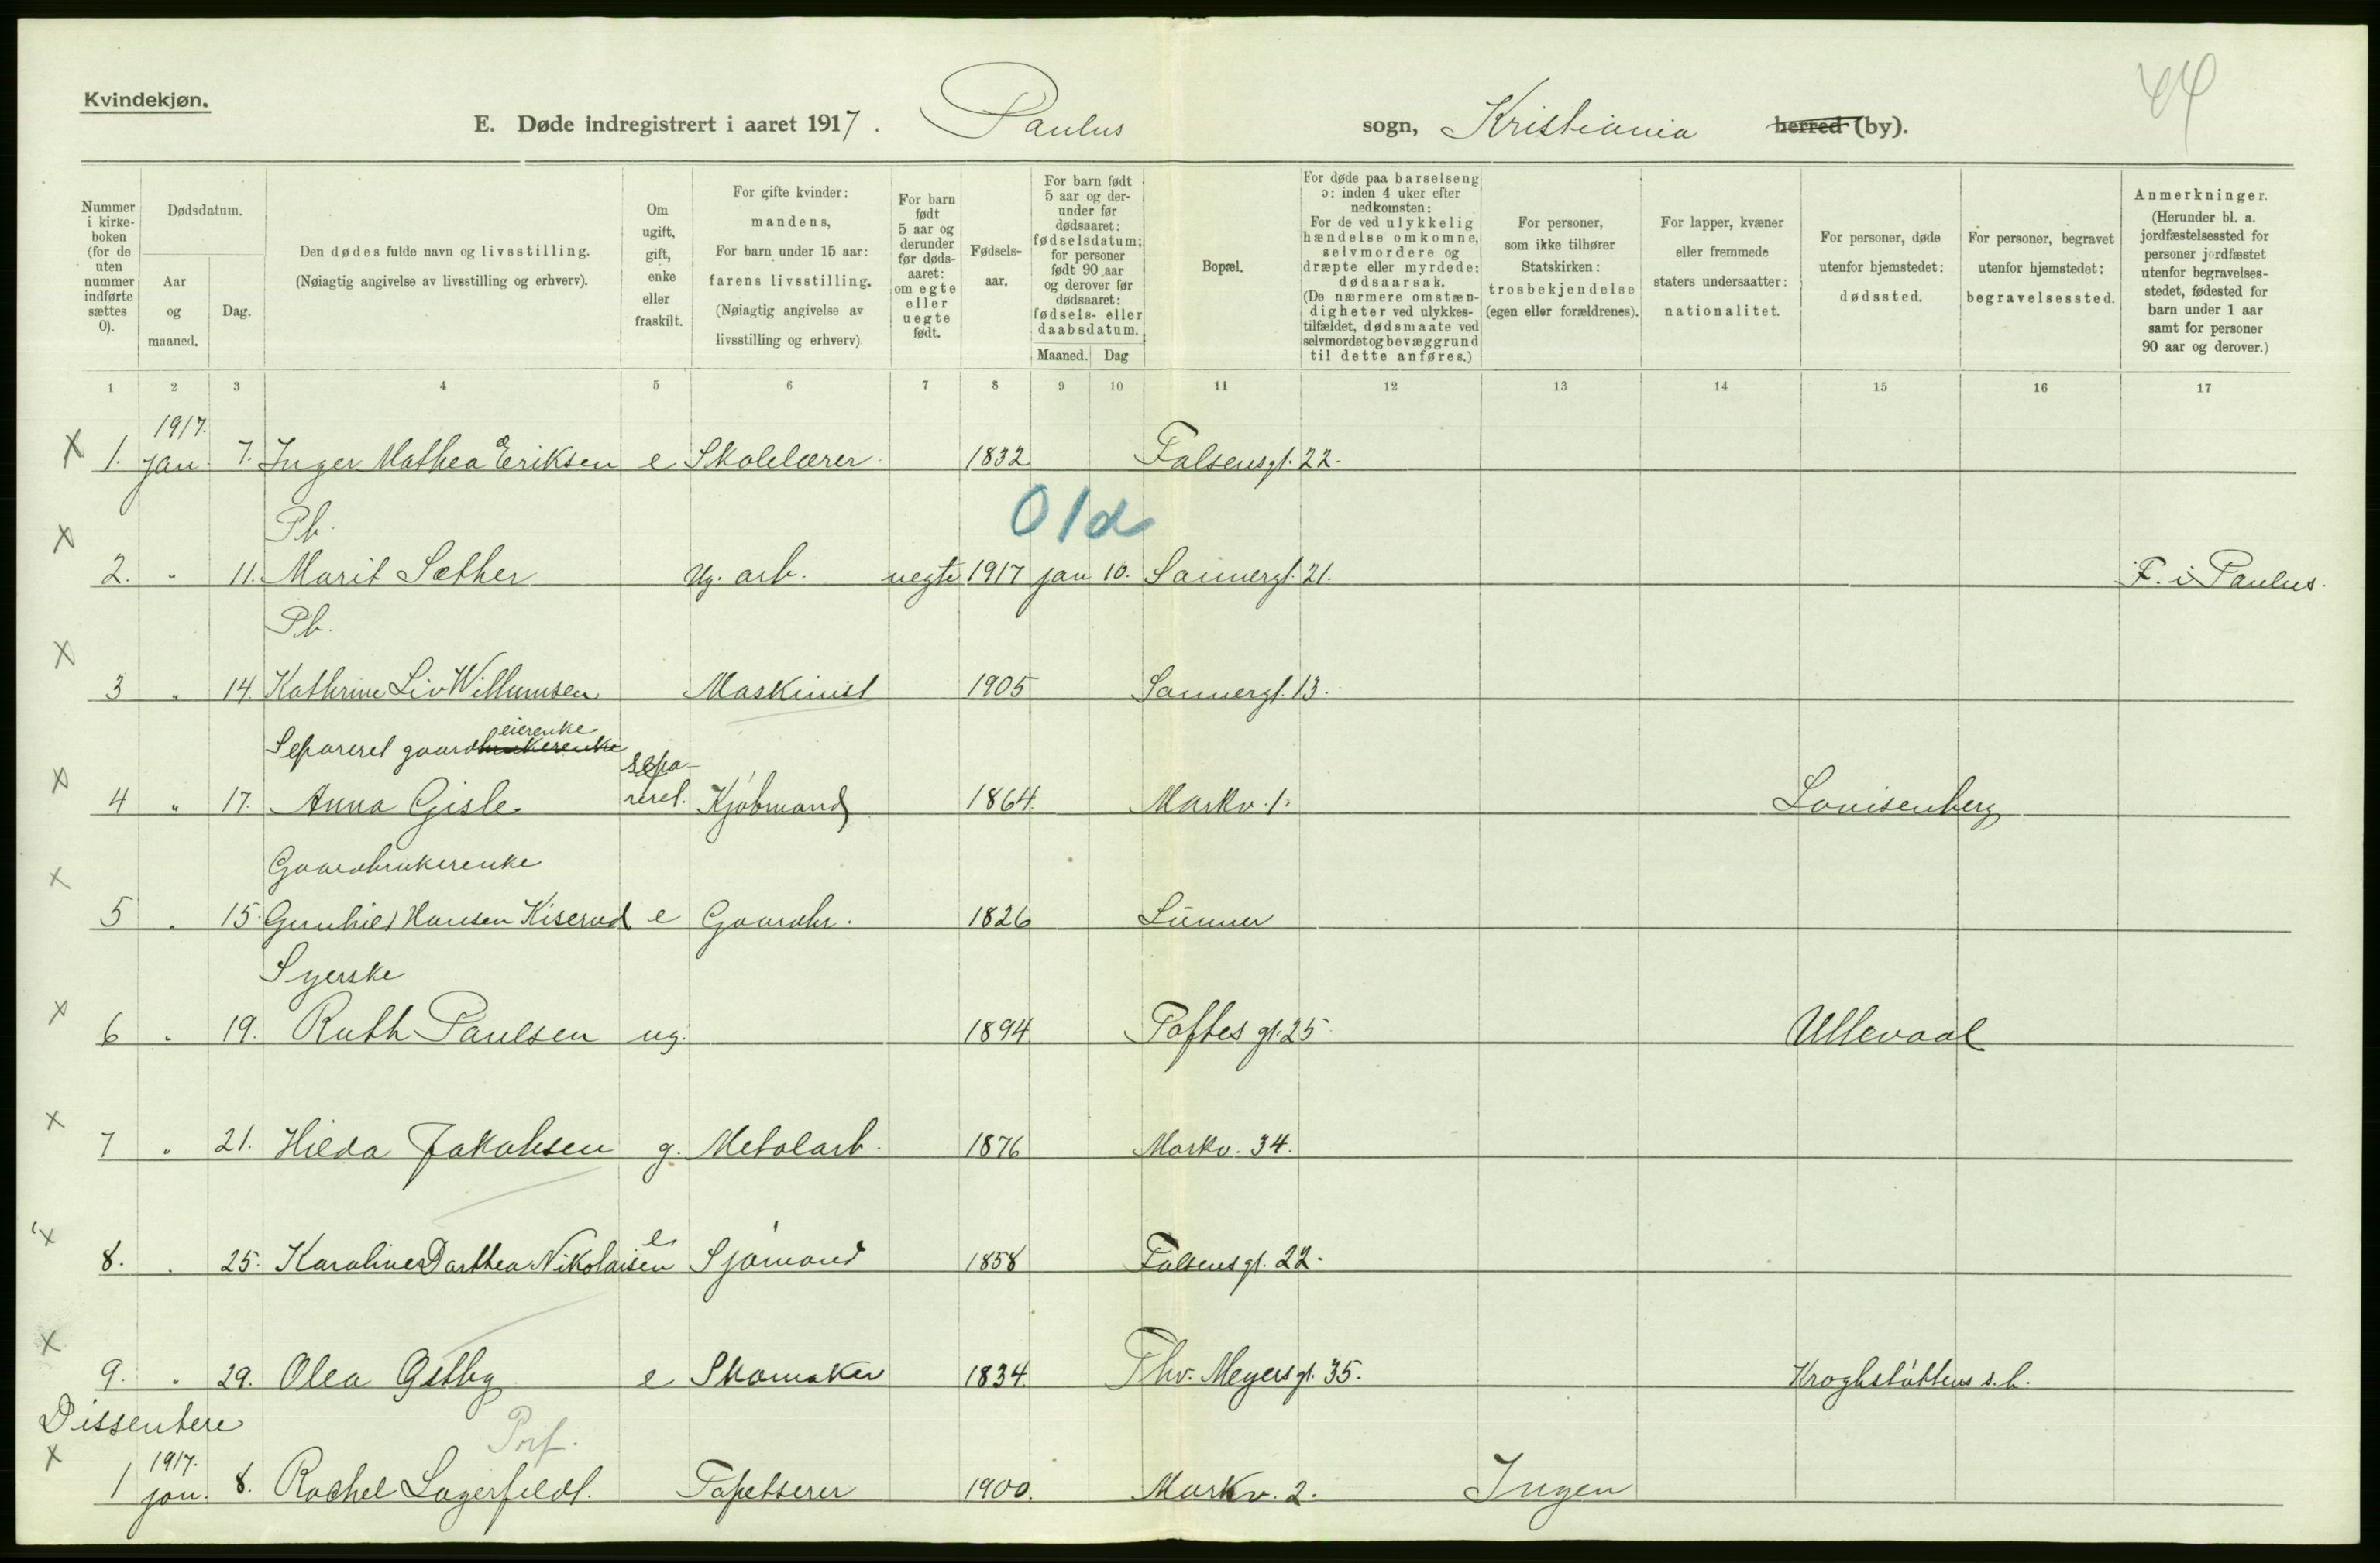 Kvindekjøn.
44
E. Døde indregistrert i aaret 1917. Paulus sogn, Kristiania herred (by).
Nummer i kirkeboken (for de uten nummer indførte sættes 0).
Dødsdatum.
Aar og maaned.
Dag.
Den dødes fulde navn og livsstilling. (Nøiagtig angivelse av livsstilling og erhverv).
Om ugift, gift, enke eller fraskilt.
For gifte kvinder: mandens, For barn under 15 aar: farens livsstilling. (Nøiagtig angivelse av livsstilling og erhverv)
For barn født 5 aar og derunder før dødsaaret: om egte eller uegte født.
Fødselsaar.
For barn født 5 aar og derunder før dødsaaret: fødselsdatum; for personer født 90 aar og derover før dødsaaret: fødsels- eller daabsdatum.
Maaned. Dag
Bopæl.
For døde paa barselseng ɔ: inden 4 uker efter nedkomsten: For de ved ulykkelig hændelse omkomne, selvmordere og dræpte eller myrdede: dødsaarsak. (De nærmere omstændigheter ved ulykkestilfældet, dødsmaate ved selvmordet og bevæggrund til dette anføres.)
For personer, som ikke tilhører Statskirken: trosbekjendelse (egen eller forældrenes).
For lapper, kvæner eller fremmede staters undersaatter: nationalitet.
For personer, døde utenfor hjemstedet: dødssted.
For personer, begravet utenfor hjemstedet: begravelsessted.
Anmerkninger. (Herunder bl. a. jordfæstelsessted for personer jordfæstet utenfor begravelsesstedet, fødested for barn under 1 aar samt for personer 90 aar og derover.)
1 2 3 4 5 6 7 8 9 10 11 12 13 14 15 16 17
1917.
x 1. jan. 7. Inger Mathea Eriksen e Skolelærer 1832 Falsensgt. 22.
Pb. Old
x 2. " 11. Marit Sæther Ug. arb. uegte 1917 jan 10. Sannergt. 21. F. i Paulus.
Pb.
x 3 " 14. Kathrine Liv Willumsen Maskinist 1905 Sannergt. 13.
eierenke
Separeret gaardbrukerenke
x 4 " 17. Anna Gisle separeret. Kjøbmand 1864. Markv. 1. Lovisenberg
Gaardbrukerenke
x 5 " 15. Gunhild Hansen Kiserud e Gaardbr. 1826 Lunner
Syerske
x 6 " 19. Ruth Paulsen ug. 1894 Toftes gt. 25 Ullevaal
x 7 " 21. Hilda Jakobsen g. Metalarb. 1876 Markv. 34.
x 8. " 25. Karoline Dorthea Nikolaisen e Sjømand 1858 Falsens gt. 22.
x 9. " 29. Olea Østby e Skomaker 1834. Thv. Meyers gt. 35. Kroghstøttens s.h.
Dissentere
x 1 1917. jan. 8. Rachel Lagerfeldt. Tapetserer 1900. Markv. 2. Ingen